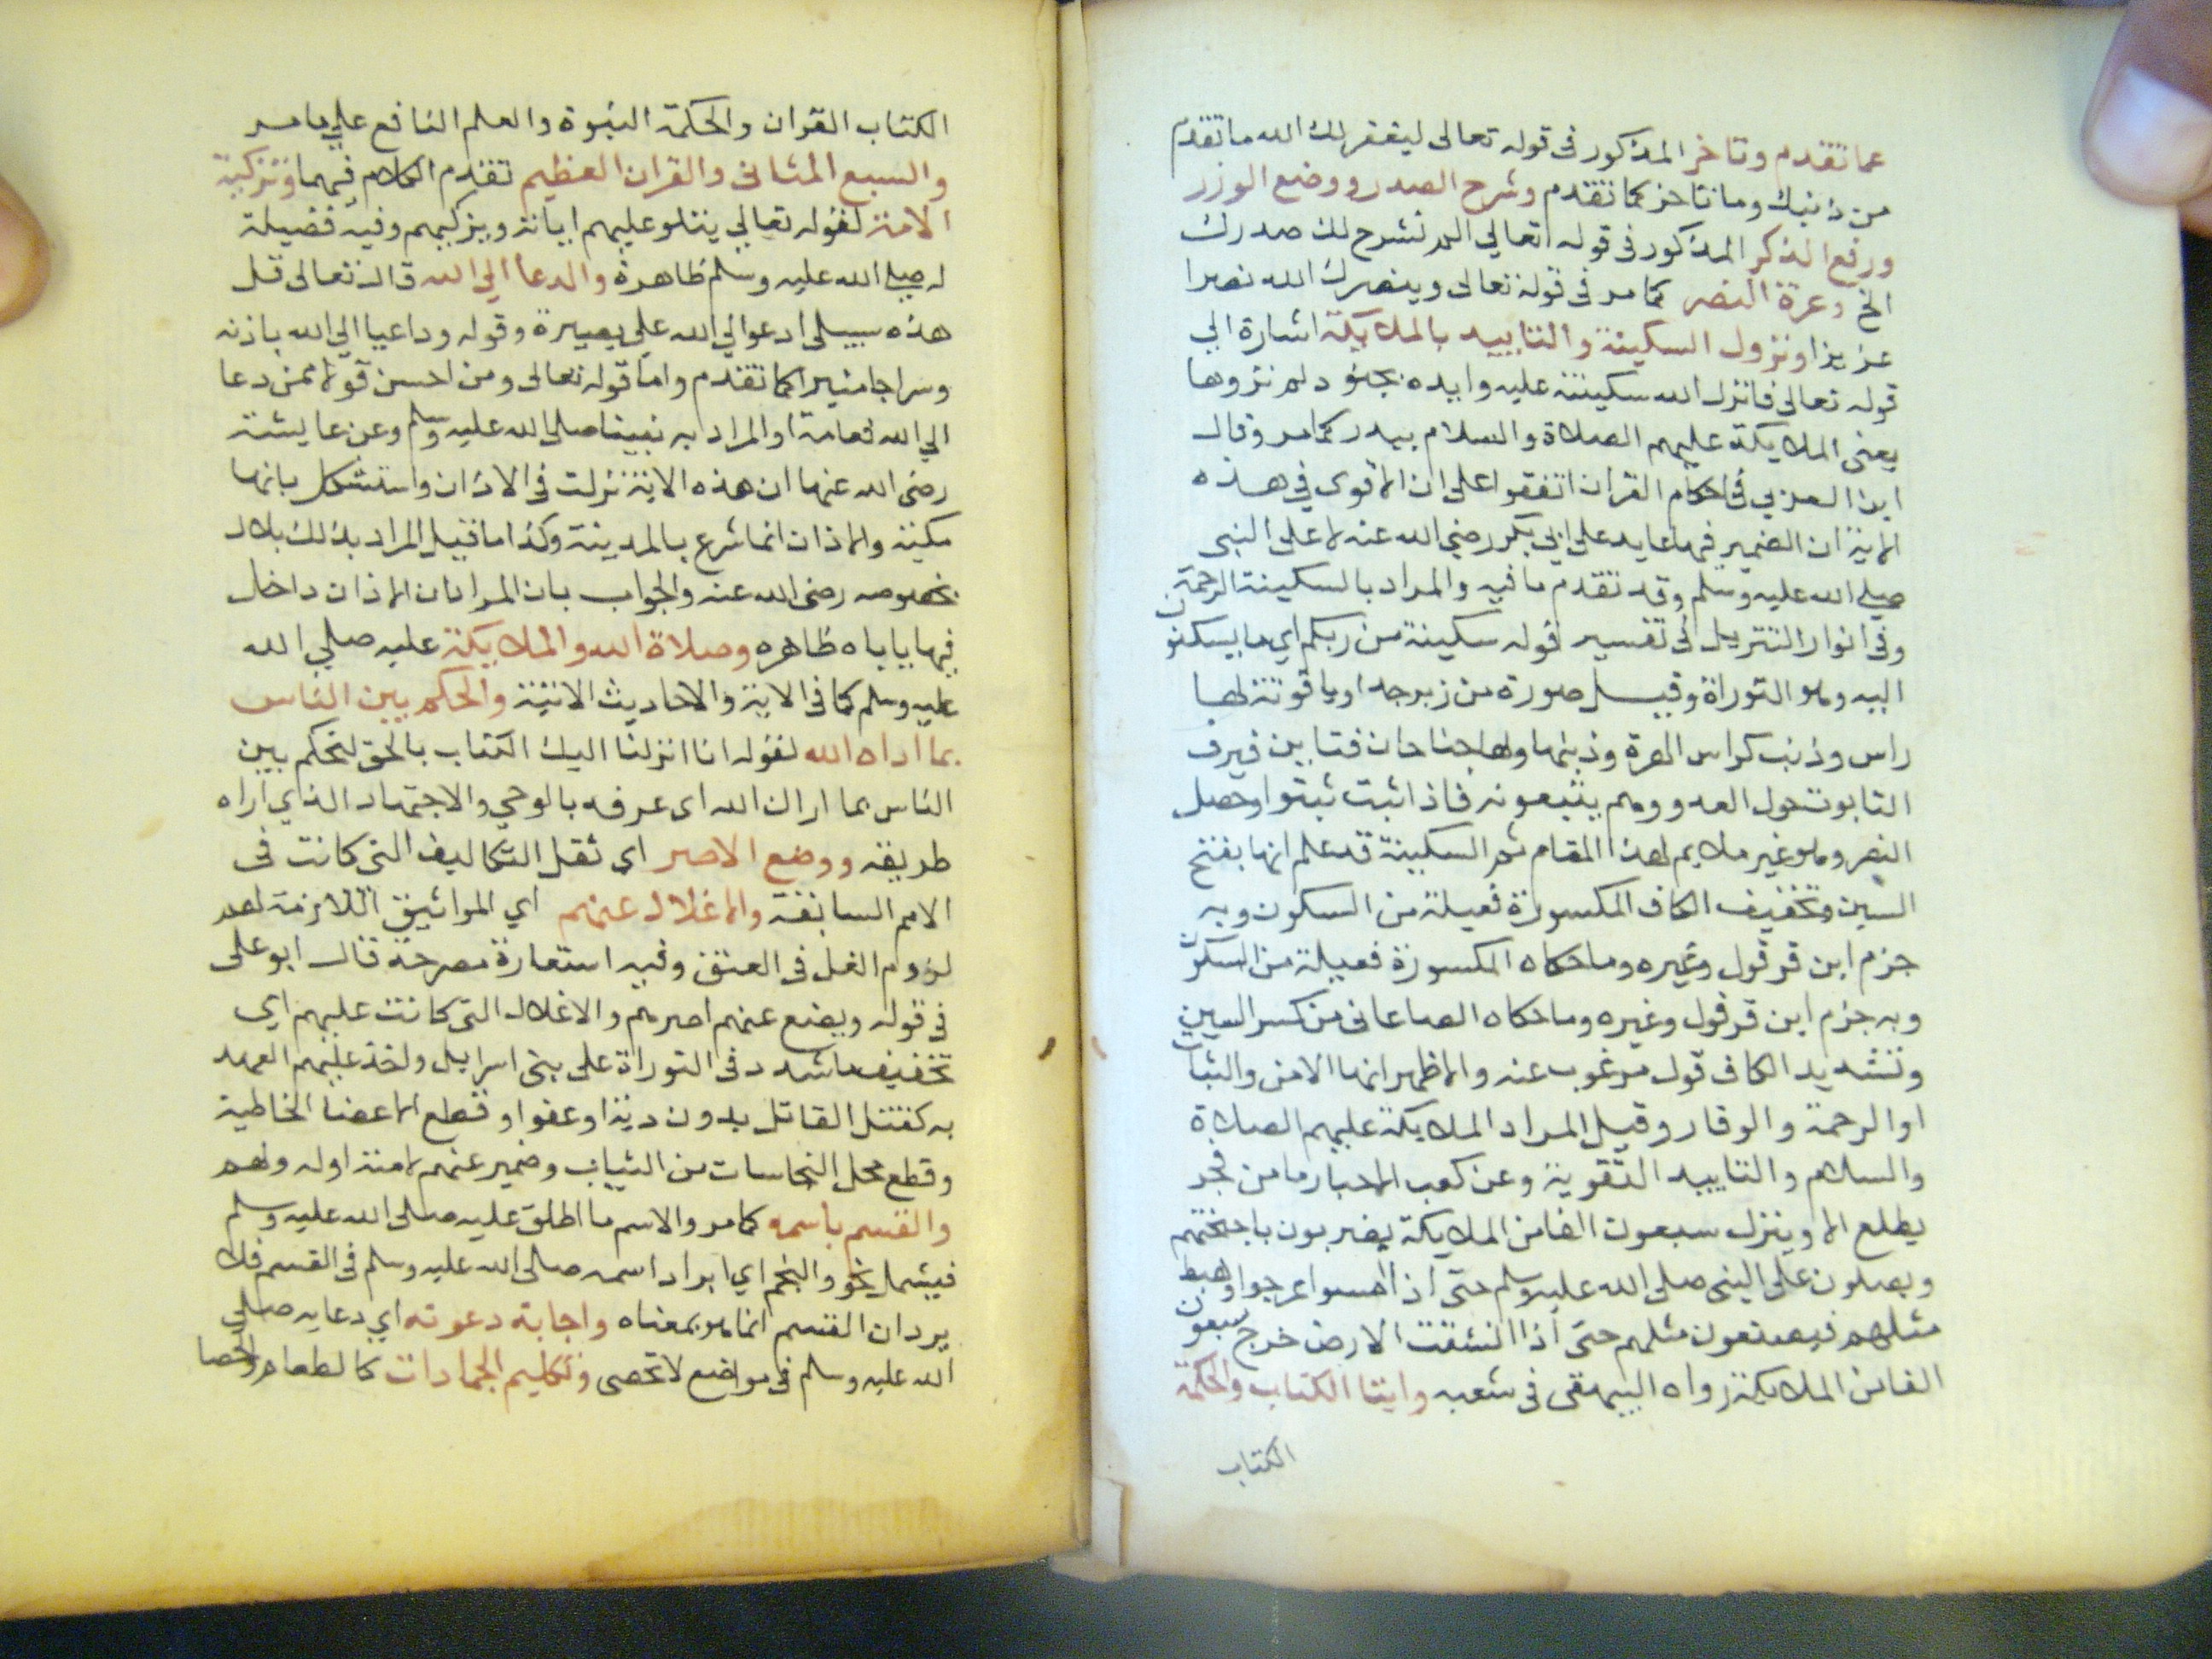 عما تقدم وتاخر المذكور فى قوله تعالى ليغفر لك الله ما تقدم
من ذنبك وما تاخر كما تقدم وشرح الصدر ووضع الوزر
ورفع الذكر المذكور فى قوله تعالي الم نشرح لك صدرك
الخ وعزة النصر كما مر فى قوله تعالى وينصرك الله نصرا
عزيزا ونزول السكينة والتاييد بالملايكة اشارة الي
قوله تعالى فانزل الله سكينته عليه وايده بجنود لم تروها
يعنى الملايكة عليهم الصلاة والسلام ببدر كما مر وقال
ابن العربي فى احكام القران اتفقوا على ان الاقوى في هذه
الاية ان الضمير فيها عايد على ابى بكر رضي الله عنه لا على النبى
صلي الله عليه وسلم وقد تقدم ما فيه والمراد بالسكينة الرحمة
وفى انوار التنزيل فى تفسير قوله سكينة من ربكم اي ما يسكنون
اليه وهو التوراة وقيل صورة من زبرجد او ياقوتة لها
راس وذنب كراس الهرة وذنبها ولها جناحان فتاين فيزف
التابوت حول العدو وهم يتبعونه فاذا ثبت ثبتوا وحصل
النصر وهو غير ملايم لهذا المقام ثم السكينة قد علم انها بفتح
السين وتخفيف الكاف المكسورة فعيلة من السكون وبه
جزم ابن قرقول وغيره وما حكاه المكسورة فعيلة من السكون
وبه جزم ابن قرقول وغيره وما حكاه الصاغانى من كسر السين
وتشديد الكاف قول مرغوب عنه والاظهر انها الامن والثبات
او الرحمة والوقار وقيل المراد الملايكة عليهم الصلاة
والسلام والتاييد التقوية وعن كعب الاحبار ما من فجر
يطلع الا وينزل سبعون الفا من الملايكة يضربون باجنحتهم
ويصلون على النبى صلى الله عليه وسلم حتى اذا امسوا عرجوا وهبط
مثلهم فيصنعون مثلهم حتى اذا انشقت الارض خرج سبعون
الفا من الملايكة رواه البيهقى فى شعبه وايتا الكتاب والحكمة
الكتاب
الكتاب القران والحكمة النبوة والعلم النافع علي ما مر
والسبع المثانى والقران العظيم تقدم الكلام فيهما وتزكية
الامة لقوله تعالي يتلو عليهم اياته ويزكيهم وفيه فضيلة
له صلي الله عليه وسلم ظاهرة والدعا الي الله قال تعالى قل
هذه سبيلى ادعو الي الله علي بصيرة وقوله وداعيا الي الله باذنه
وسراجا منيرا كما تقدم واما قوله تعالى ومن احسن قولا ممن دعا
الي الله فعامة او المراد به نبينا صلى الله عليه وسلم وعن عايشة
رضى الله عنها ان هذه الاية نزلت فى الاذان واستشكل بانها
مكية والاذان انما شرع بالمدينة وكذا ما قيل المراد بذلك بلال
بخصوصه رضى الله عنه والجواب بان المراد ان الاذان داخل
فيها ياباه ظاهره وصلاة الله والملايكة عليه صلي الله
عليه وسلم كما فى الاية والاحاديث الاتية والحكم بين الناس
بما اراه الله لقوله انا انزلنا اليك الكتاب بالحق لتحكم بين
الناس بما اراك الله اى عرفه بالوحي والاجتهاد الذي اراه
طريقه ووضع الاصر اي ثقل التكاليف التى كانت فى
الامم السابقة والاغلال عنهم اي المواثيق اللازمة لهم
لزوم الغل فى العنق وفيه استعارة مصرحة قال ابو على
فى قوله ويضع عنهم اصرهم والاغلال التى كانت عليهم اي
تخفيف ما شدد فى التوراة على بنى اسرايل واخذ عليهم العهد
به كقتل القاتل بدون دية او عفو او قطع الاعضا الخاطية
وقطع محل النجاسات من الثياب وضمير عنهم لامته او له ولهم
والقسم باسمه كما مر والاسم ما اطلق عليه صلى الله عليه وسلم
فيشمل نحو والنجم اي ايراد اسمه صلى الله عليه وسلم فى القسم فلا
يرد ان القسم انما هو بمعناه واجابة دعوته اي دعايه صلي
الله عليه وسلم فى مواضع لا تحصى وتكليم الجمادات كالطعام والحصا